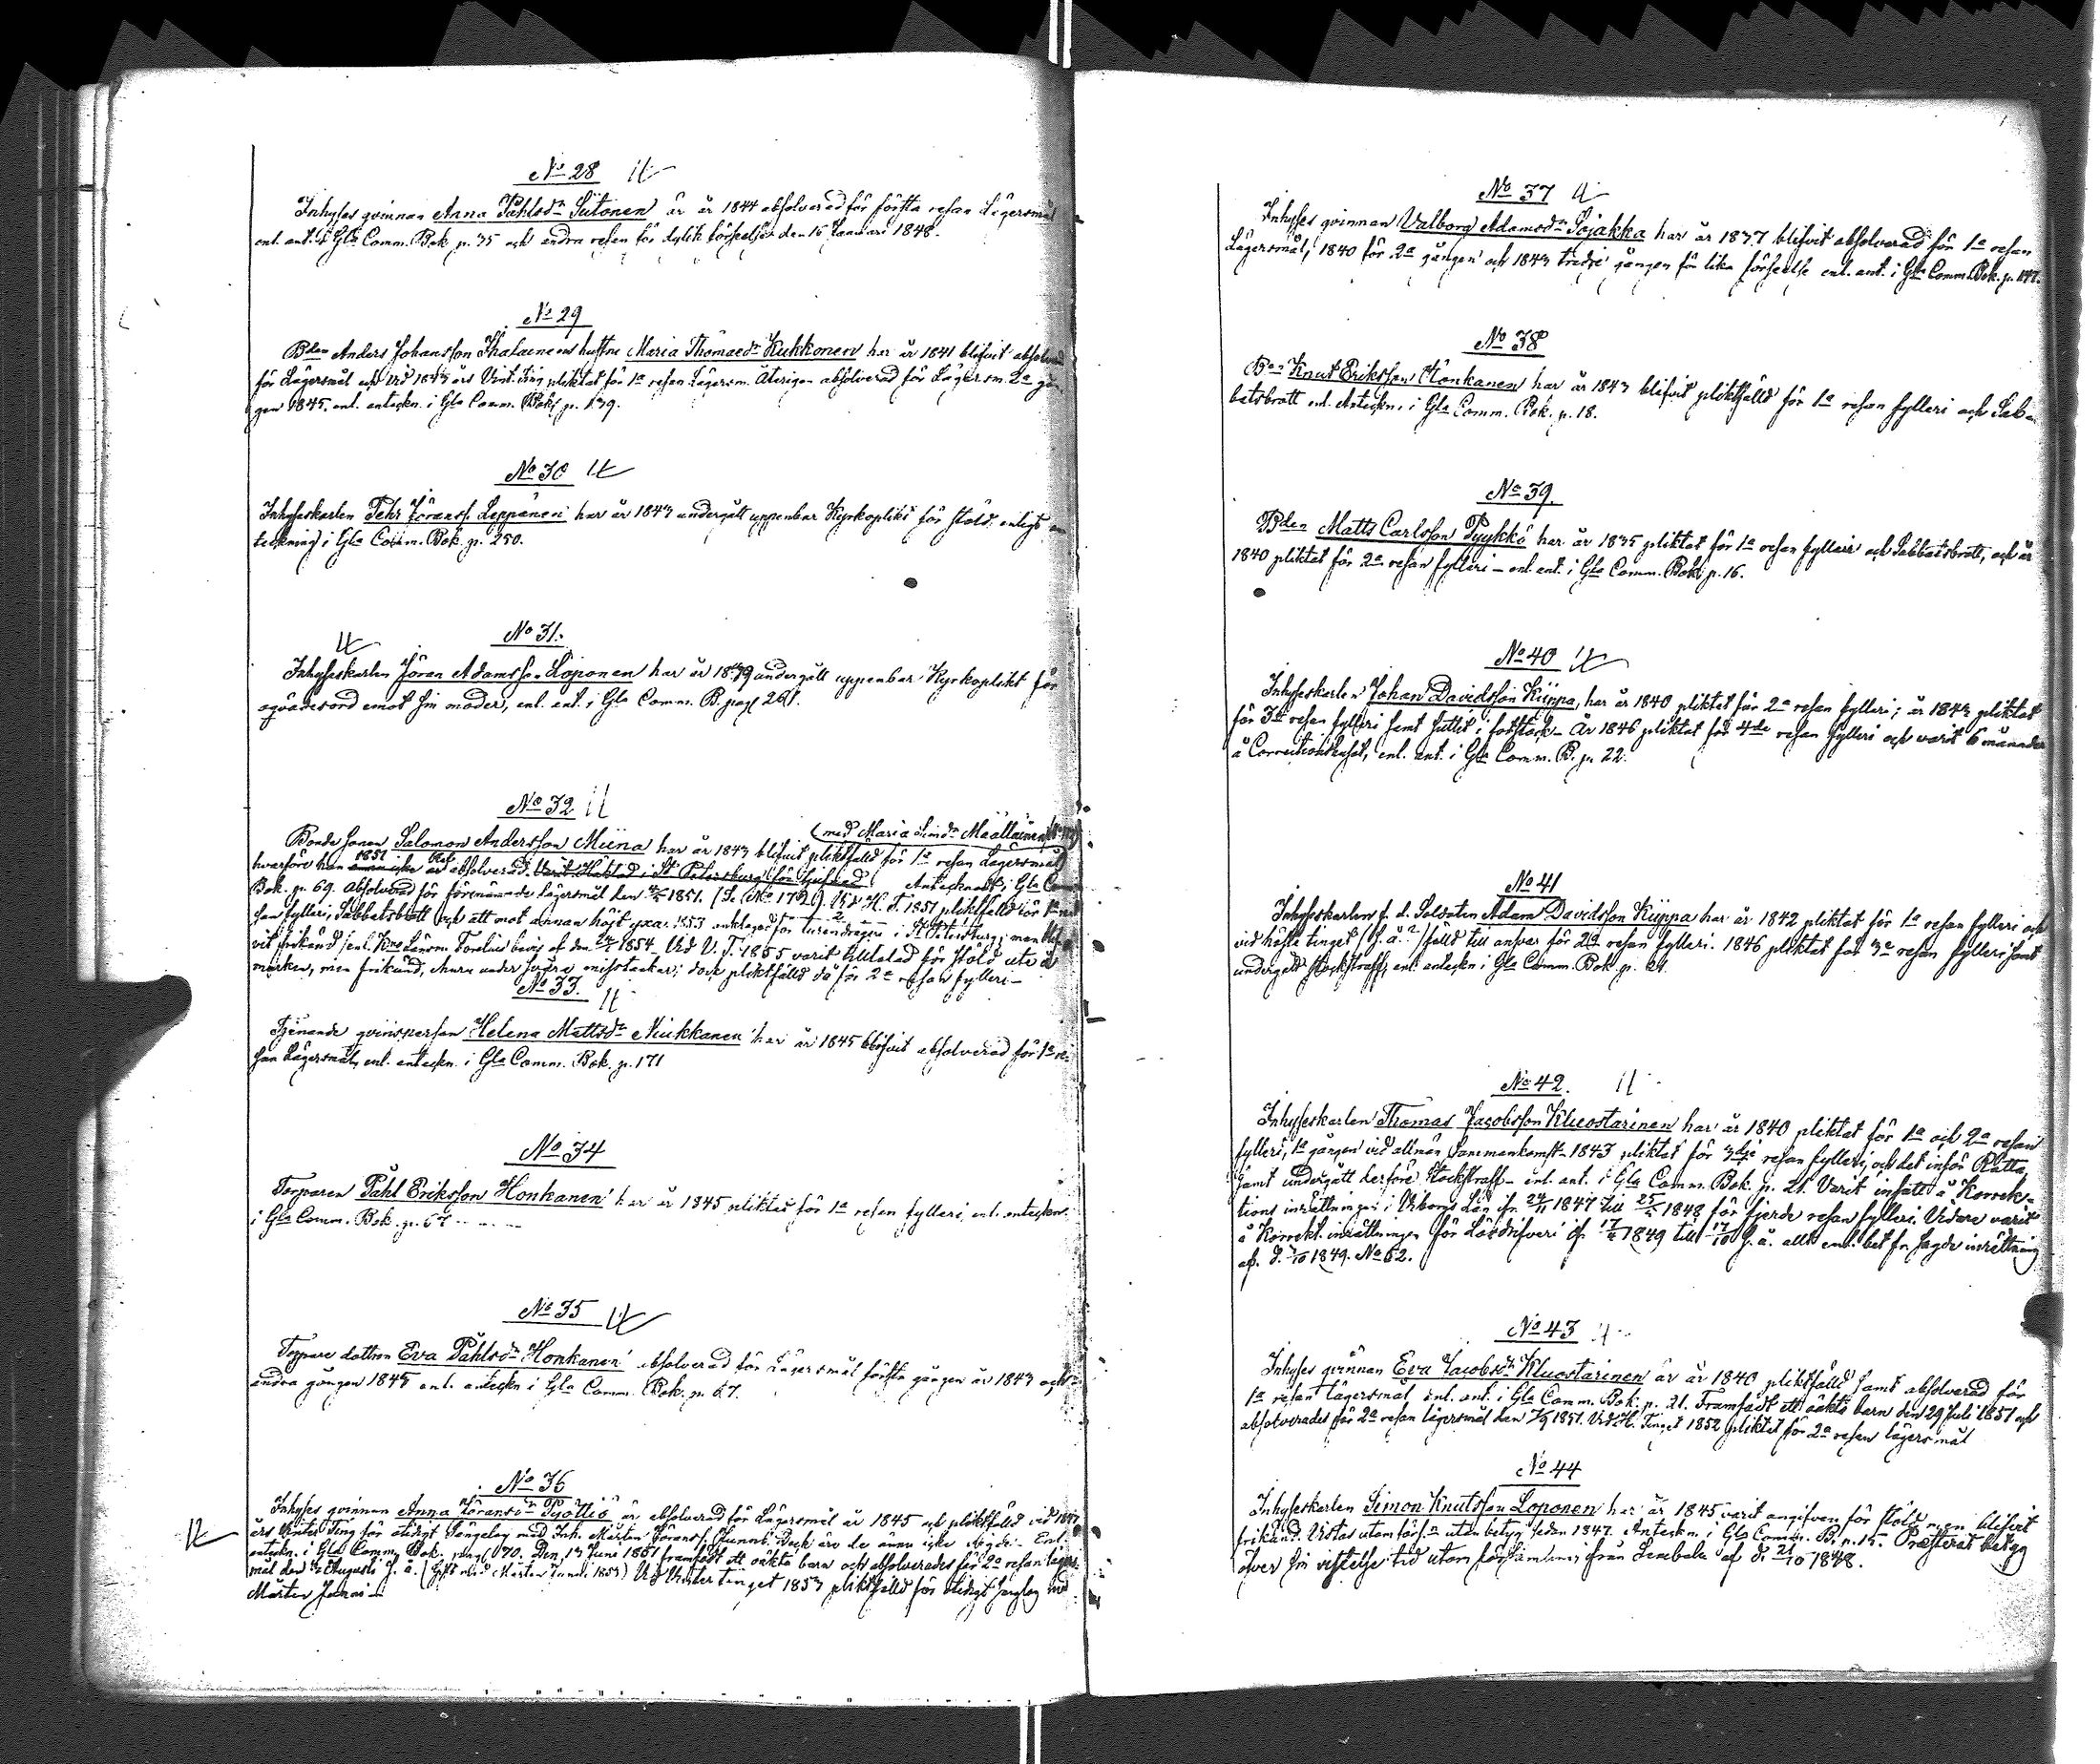 No 28
Inhyses qvinnan Anna Påhlsdr Sutonen är år 1844 absolverad för första resan Lägersmål
enl. ant. i Gla Comm. Bok p. 35 och andra resan för dylik förseelse den 16 Januari 1848.
No 29
Bden Anders Johansson Thalainens hustru Maria Thomædr Kukkonen har år 1841 blifvit absolverad
för Lägersmål och vid 1843 års Vint. Ting pliktat för 1a resan Lägersm. Återigen absolverad för Lägersm. 2a gån
gen 1845. enl. anteckn. i Gla Comm. Bok p. 139.
No 30
Inhyseskarlen Pehr Jöranss. Leppänen har år 1843 undergått uppenbar Kyrkoplikt för stöld enligt an
teckning i Gla Comm. Bok. p. 250.
No 31.
Inhyseskarlen Jöran Adamsson Loponen har år 1839 undergått uppenbar Kyrkoplikt för
oqvädesord emot sin moder, enl. ant. i Gla Comm. B. pag 261.
No 32
(med Maria Simdr Määttäinen
Bonde sonen Salomon Andersson Miina har år 1843 blifvit pliktfälld för 1a resan Lägersmål
hvarföre han 1851 är absolverad. Varit häktad i St Petersburg för Antecknadt i Gla Comm
Bok. p. 69. Absolverad för förenämnde lägersmål den 1851. (Se No 172). Vid H. T. 1851 pliktfälld för 1a re
san fylleri, Sabbatsbrott och att mot annan höjt yxa. 1853 anklagad för lurendrägeri i St Petersburg; men blif
vit frikänd enl. Kno Länsm. Forelii bevis af den 1854. Vid V. T. 1855 varit tilltalad för stöld ute å
marken, men frikänd, ehuru under svåra misstankar; dock pliktfälld då för 2a resan fylleri
No 33.
Tjenande qvinsperson Helena Mattsdr Niukkanen har år 1845 blifvit absolverad för 1a re
san Lägersmål, enl. anteckn. i Gla Comm. Bok. p. 171
No 34
Torparen Påhl Eriksson Honkanen har år 1845 pliktat för 1a resan fylleri, enl. anteckn.
i Gla Comm. Bok. p. 67
No 35
Torpare dottren Eva Påhlsdr Honkanen absolverad för Lägersmål första gången år 1843 och
andra gången 1845 enl. anteckn i Gla Comm. Bok. p. 67.
No 36
Inhyses qvinnan Anna Jöransdr Pyöttiö är absolverad för Lägersmål år 1845 och pliktfälld vid 1847
års Vinter Ting för otidigt Sänglag med Inh. Mårten Jöranss. Junni. Dock äro de ännu icke vigde. Enl.
anteckn. i Gla Comm. Bok. pag 170. Den 13 Juni 1851 framfödt ett oäkta barn och absolverades för 2a resan lägers
mål den Augusti s. å. (Gift med Mårten Junni 1853) Vid Vinter tinget 1853 pliktfälld för otidigt sänglag med
Mårten Junni
No 37
Inhyses qvinnan Valborg Adamsdr Sojakka har år 1837 blifvit absolverad för 1a resan
Lägersmål, 1840 för 2a gången och 1843 tredje gången för lika förseelse enl. ant. i Gla Comm. Bok. p. 147.
No 38
Bden Knut Eriksson Honkanen har år 1843 blifvit pliktfälld för 1a resan fylleri och Sab
batsbrott enl. Anteckn. i Gla Comm. Bok. p. 18.
No 39.
Bden Matts Carlsson Pyykkö har år 1835 pliktat för 1a resan fylleri och Sabbatsbrott, och år
1840 pliktat för 2a resan fylleri – enl. ant. i Gla Comm. Bok p. 16.
No 40
Inhyseskarlen Johan Davidsson Kiippa, har år 1840 pliktat för 2a resan fylleri; år 1843 pliktat
för 3de resan fylleri samt suttit i fotstock – År 1846 pliktat för 4de resan fylleri och varit 6 månader
å Correctionshuset, enl. ant. i Gla Comm. B. p. 22.
No 41
Inhyseskarlen f. d. Soldaten Adam Davidsson Kiippa har år 1842 pliktat för 1a resan fylleri och
vid höste tinget s. å. fälld till ansvar för 2a resan fylleri. 1846 pliktat för 3e resan fylleri samt
undergått Stockstraff, enl. anteckn i Gla Comm. Bok. p. 21.
No 42.
Inhyseskarlen Thomas Jacobsson Kluostarinen har år 1840 pliktat för 1a och 2a resan
fylleri, 1a gången vid allmän Sammankomst 1843 pliktat för 3dje resan fylleri, och det inför Rätta,
samt undergått derföre Stockstraff – enl. ant. i Gla Comm. Bok. p. 21. Varit insatt å Korrek-
tions inrättningen i Viborgs Län ifr. 24/11 1847 till 25/5 1848 för fjerde resan fylleri. Vidare varit
å Korrekt. inrättningen för Lösdrifveri ifr 17/4 1849 till 17/10 s. å. allt enl. bet fr. sagde inrättning
af d. 1849. No 62.
No 43
Inhyses qvinnan Eva Jacobsdr Kluostarinen är år 1840 pliktfälld samt absolverad för
1a resan lägersmål enl. ant. i Gla Comm. Bok. p. 21. Framfödt ett oäkta barn den 29 Juli 1851 och
absolverades för 2a resan lägersmål den 7/9 1851. Vid H. Tinget 1852 pliktat för 2a resan lägersmål
No 44
Inhyseskarlen Simon Knutsson Loponen har år 1845 varit angifven för stöld men blifvit
frikänd. Vistas utom förs. utan betyg sedan 1847. Anteckn. i Gla Comm. B. p. 15. Præsterat betyg
öfver sin vistelse tid utom församling ifrån Lembala af d. 21/10 1848.